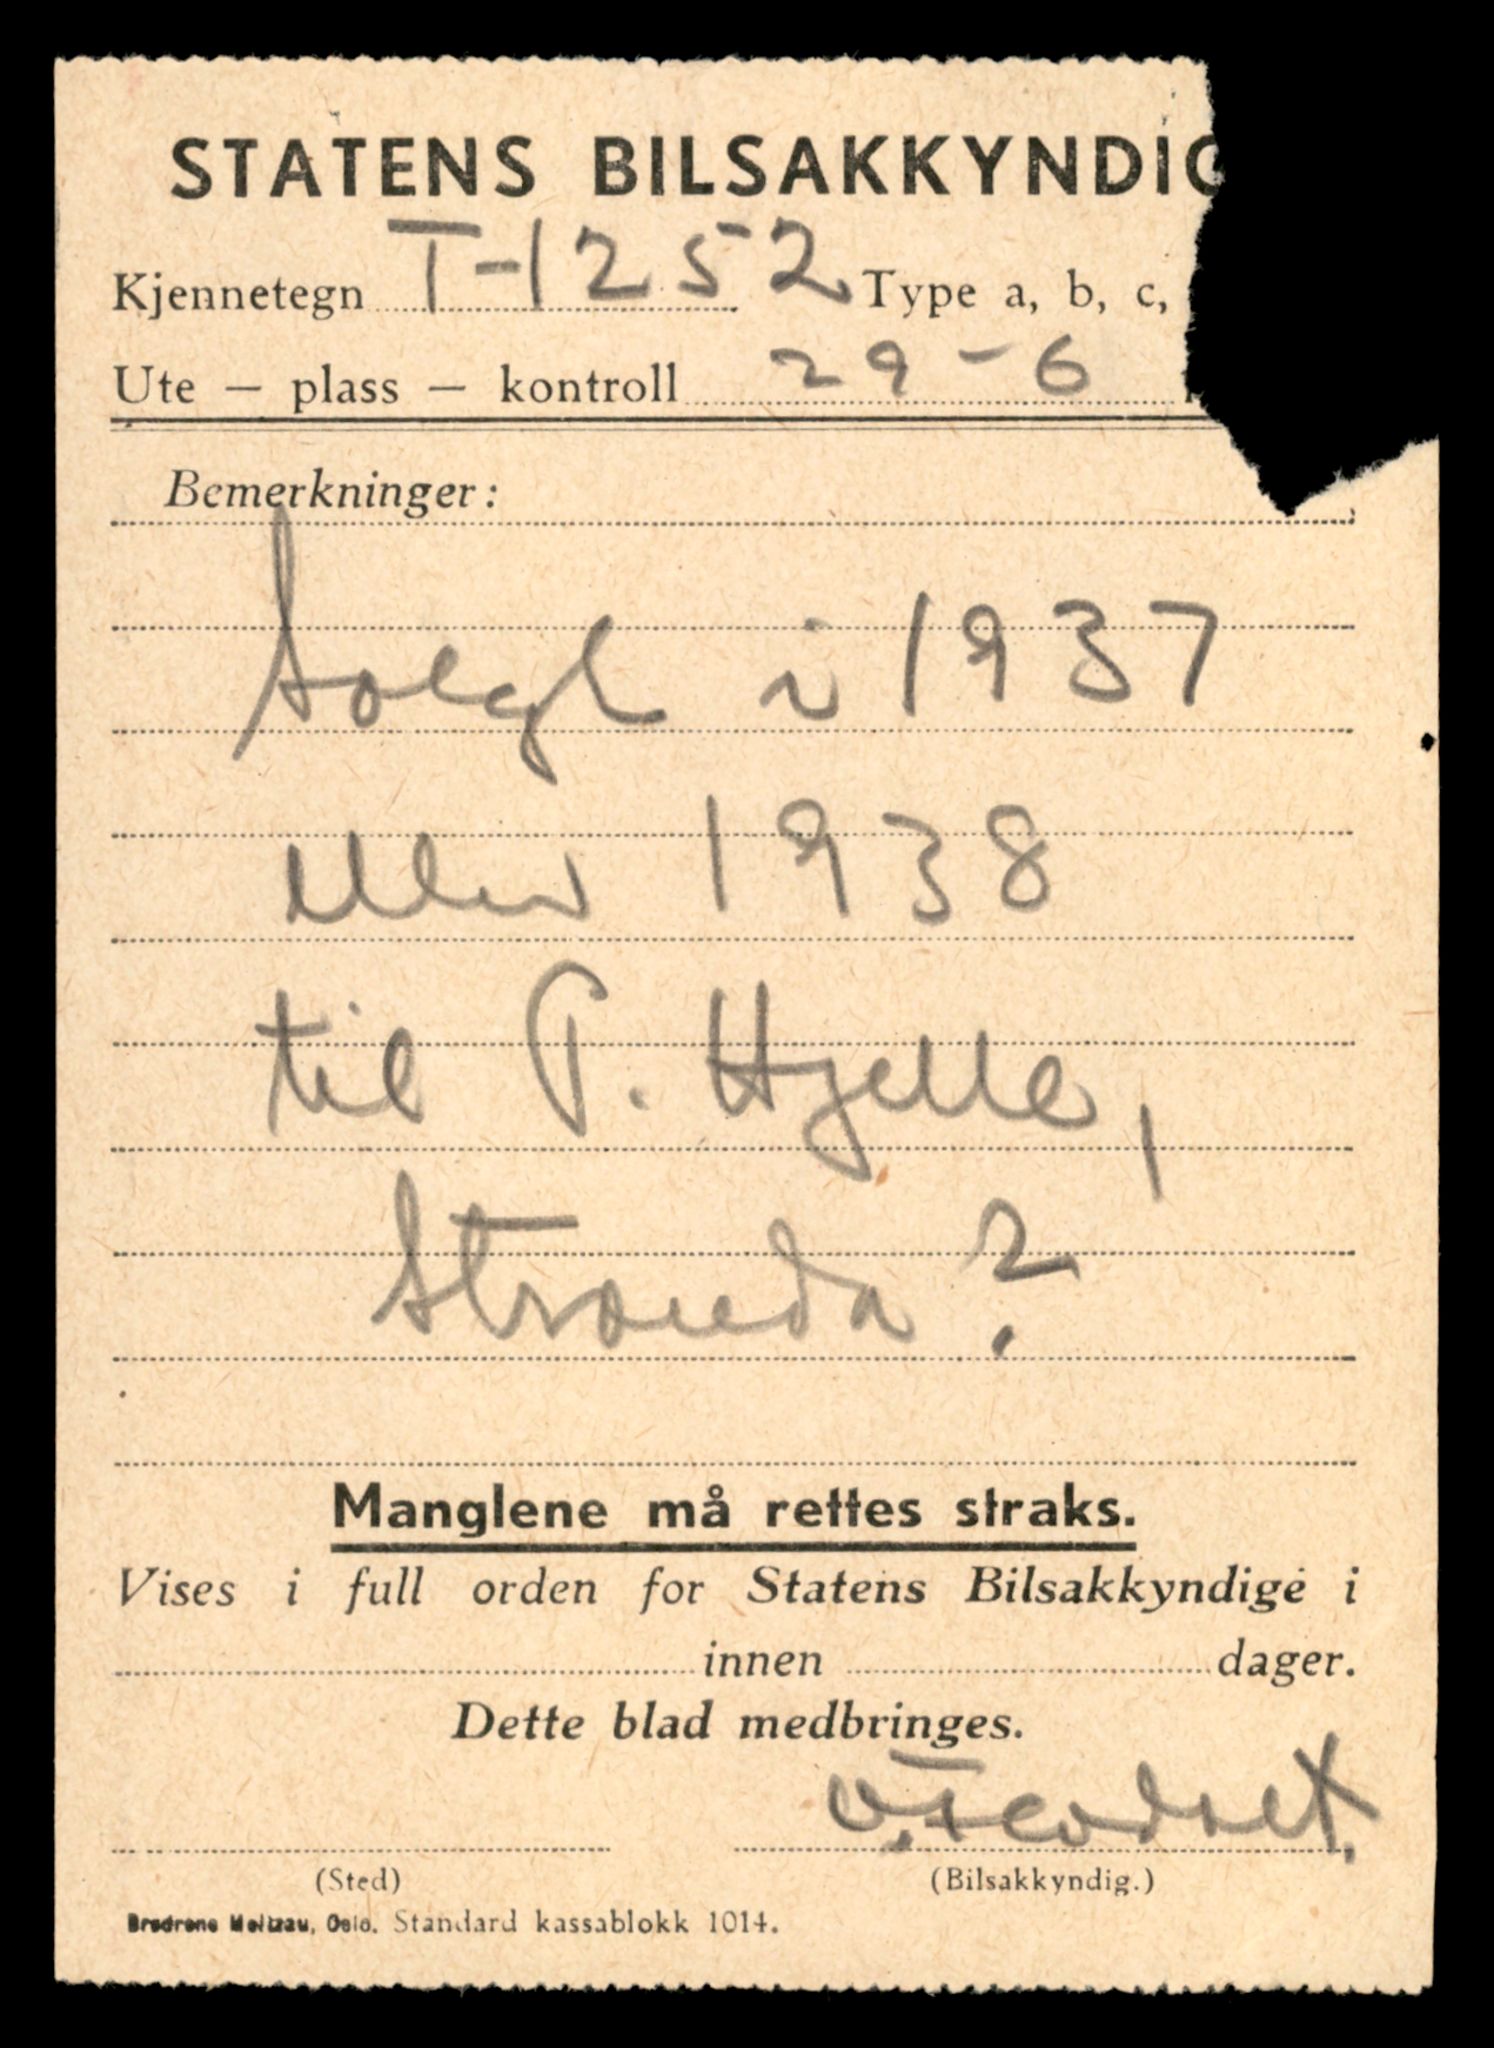 STATENS BILSAKKYNDIG
Kjennetegn T-1252 Type a, b, c,
Ute — plass — kontroll 29-6
Bemerkninger:
Solgt i 1937
eller 1938
til P. Hjelle,
Stranda?
Manglene må rettes straks.
Vises i full orden for Statens Bilsakkyndige i
innen dager.
Dette blad medbringes.
(Sted) (Bilsakkyndig.)
Brødrene Meltzau, Oslo. Standard kassablokk 1014.